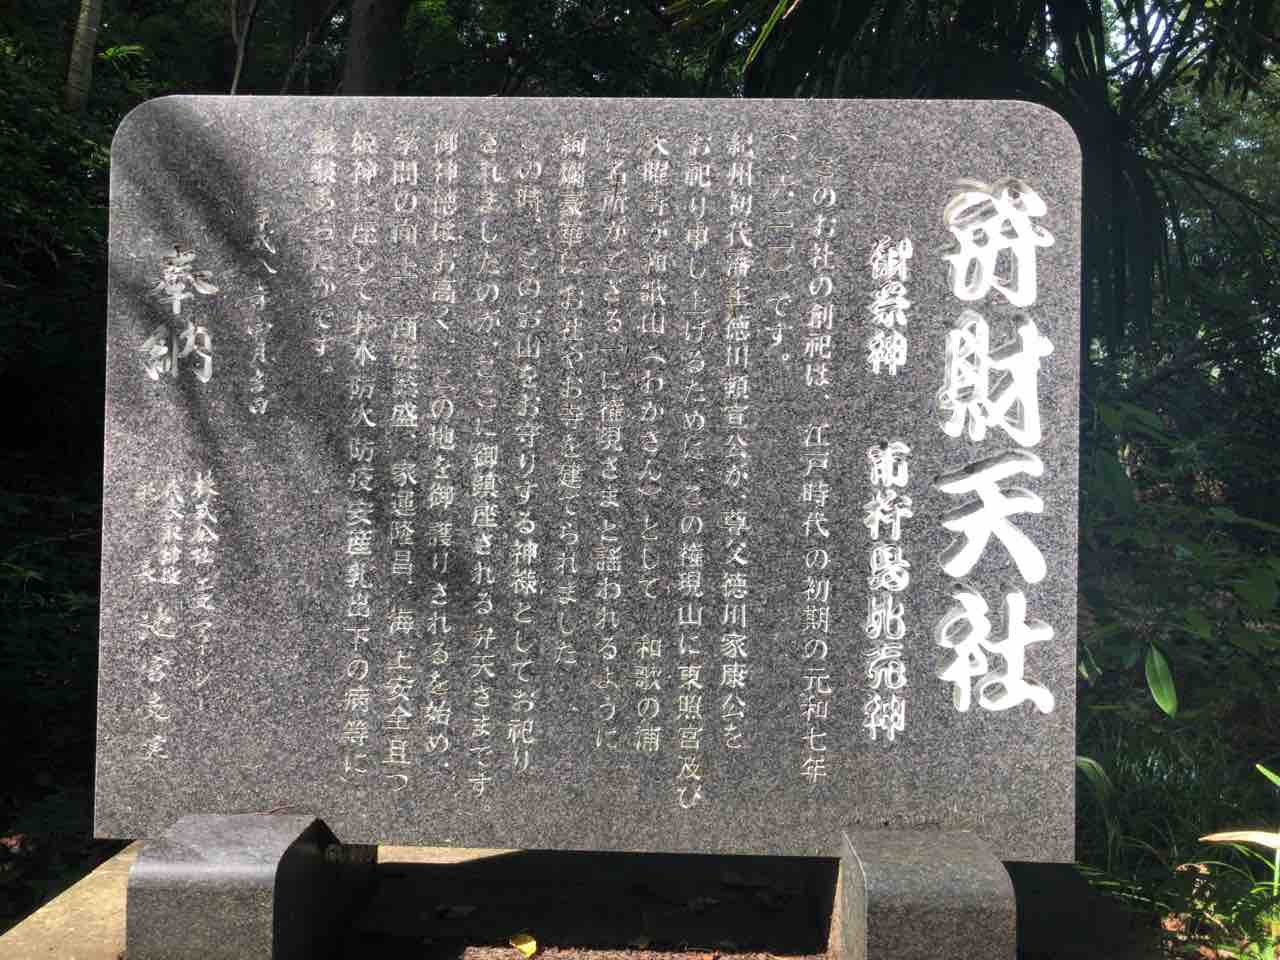 弁財天社
御祭神 市杵島比売神
このお社の創祀は、江戸時代の初期の元和七年
(一六二一)です。
紀州初代藩主徳川頼宣公が、尊父徳川家康公を
お祀り申し上げるために、この権現山に東照宮及び
天曜寺が和歌山(わかさん)として 和歌の浦
に名所がござる 一に権現さまと謡われるように
絢爛豪華にお社やお寺を建てられました。
この時、このお山をお守りする神様としてお祀り
されましたのが、ここに御鎮座される弁天さまです。
御神徳はお高く、この地を御守護けされるを始め、
学問の向上、商売繁盛、家運隆昌、海上安全且つ
姫神に座して井水防火防疫安産乳出下の病等に
霊験あらたかです。
平成八年 月吉日
奉納
株式会社